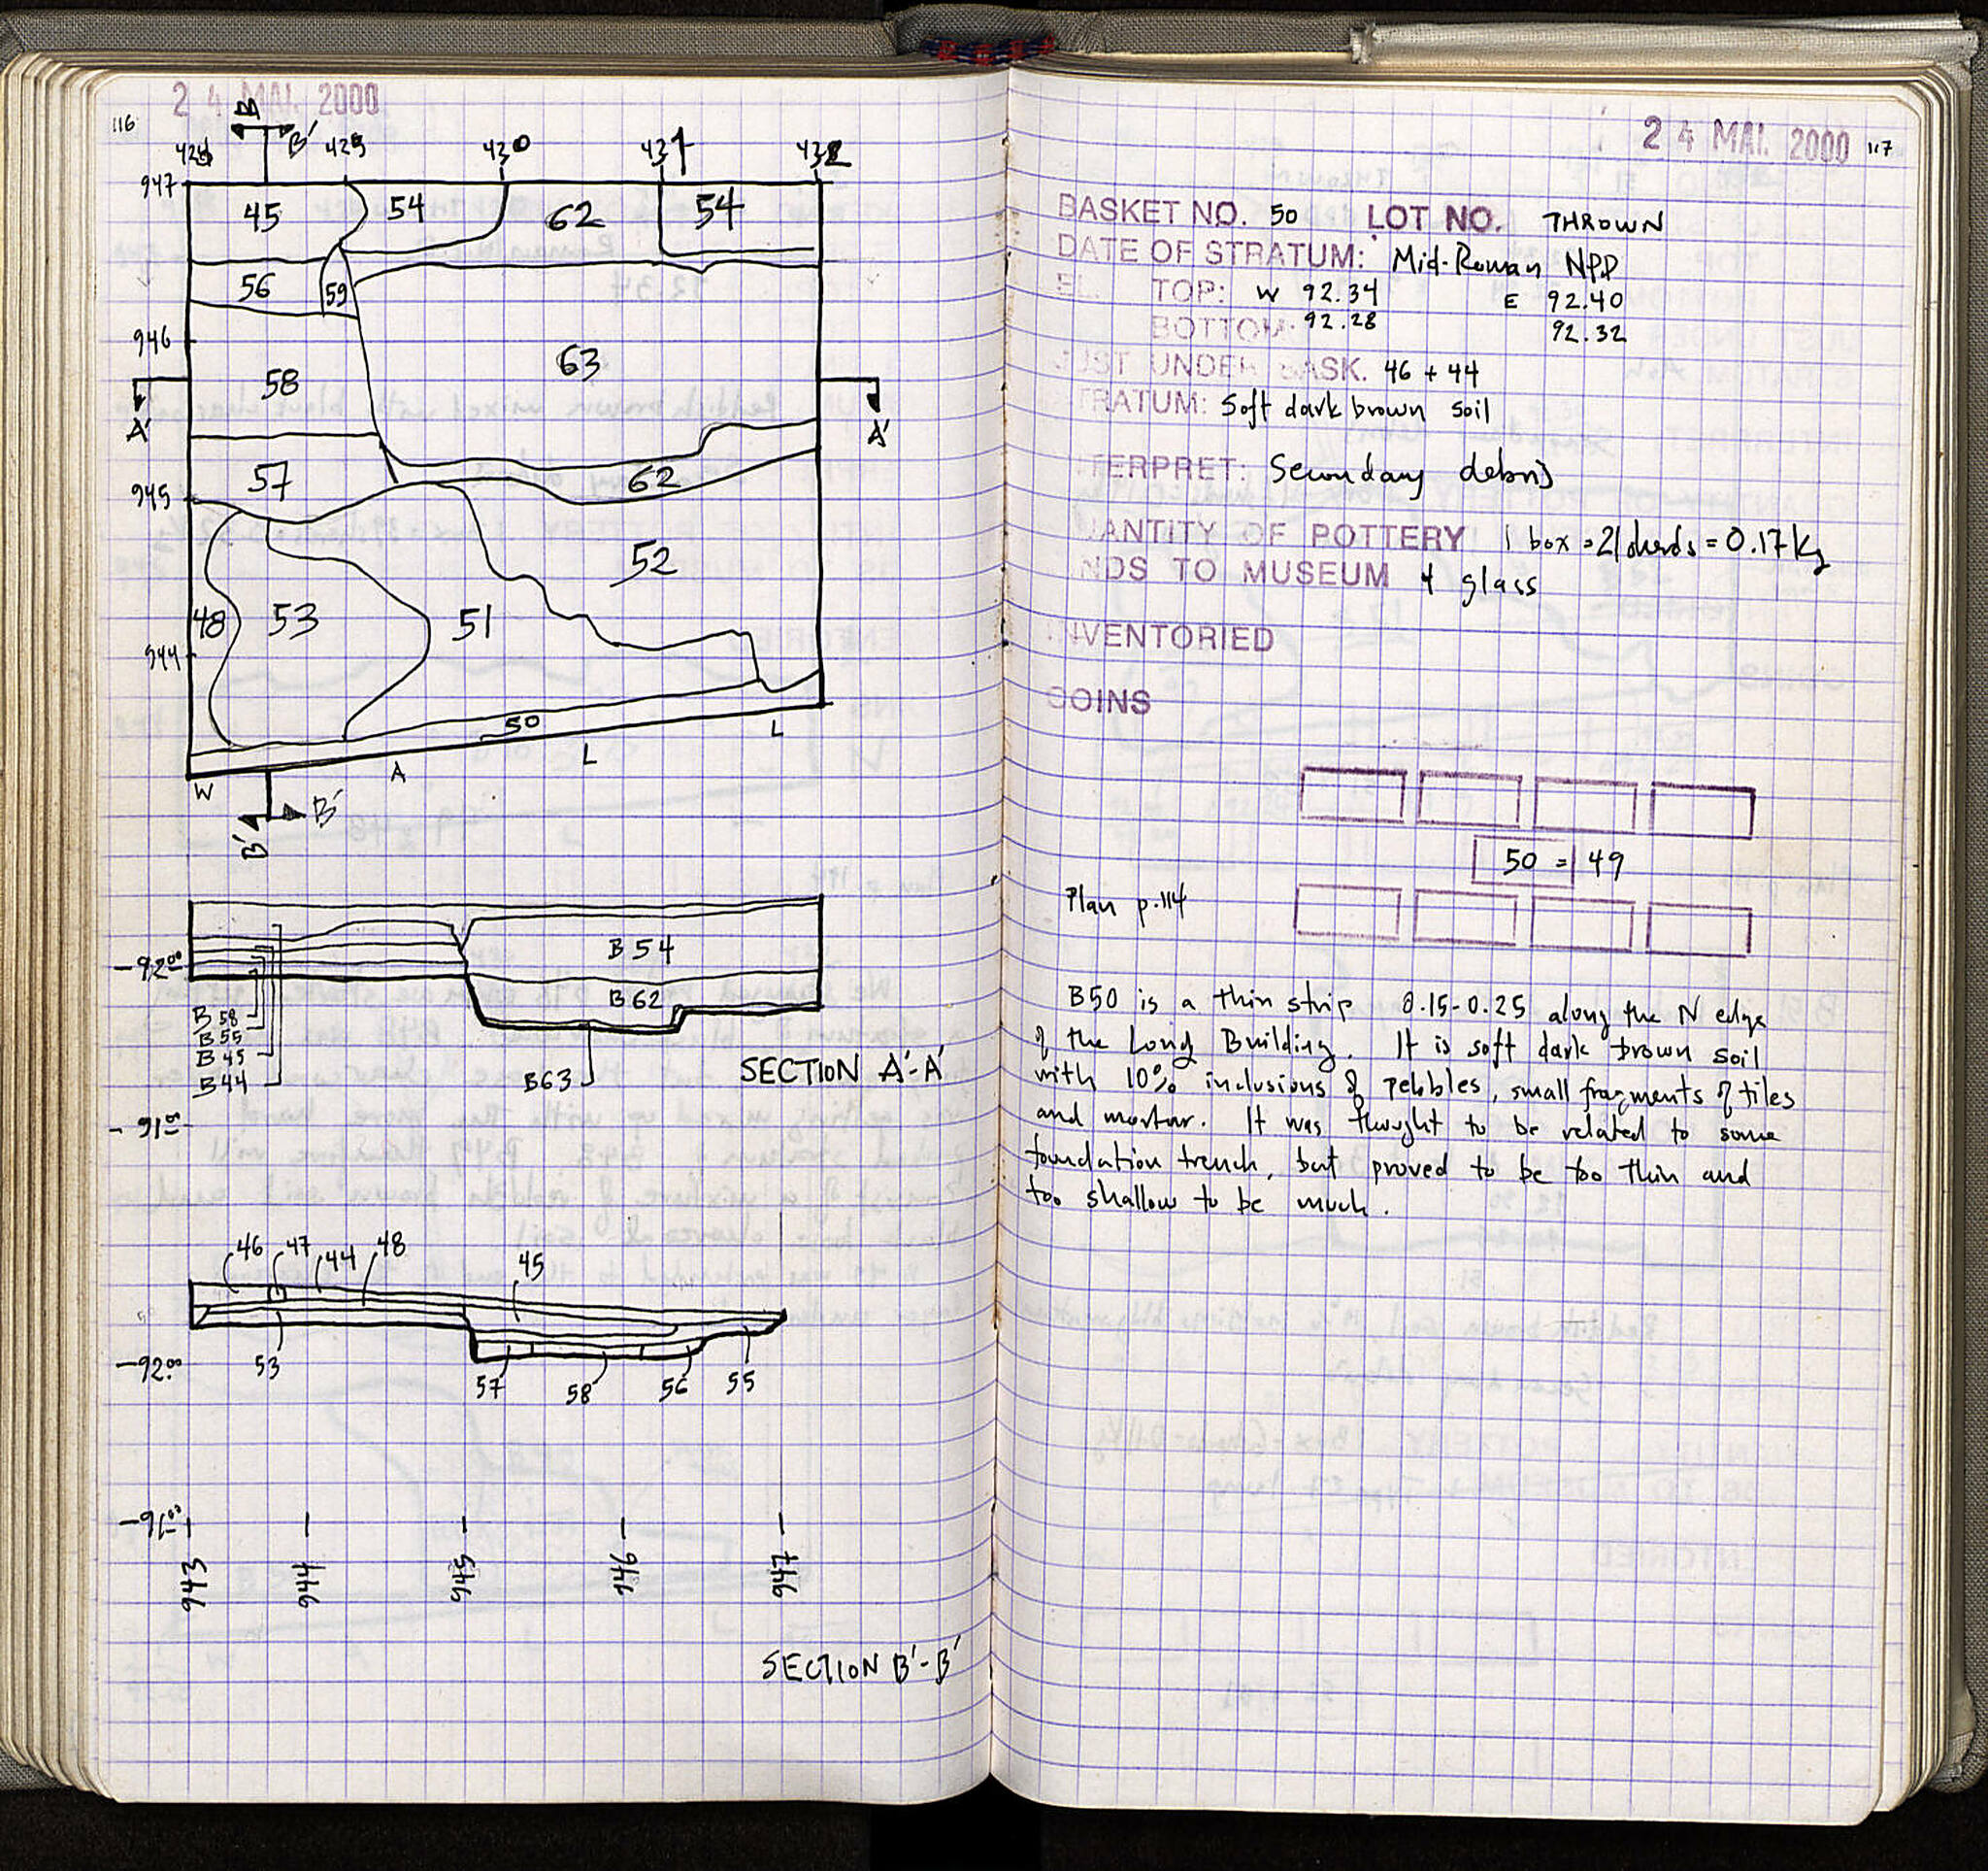 24 MAI. 2000
116
B'
429
430
431
432
947
45
54
62
54
56
59
946
58
63
A'
A'
57
62
945
52
48
53
51
944
50
W
A
L
L
B'
B'
B 54
-92.00
B 62
B 58
B 55
B 45
B 44
B63
SECTION A'-A'
-91.00
46
47
44
48
45
-92.00
53
57
58
56
55
-91.00
943
944
945
946
947
SECTION B'-B'
24 MAI. 2000
117
BASKET NO. 50 LOT NO. THROWN
DATE OF STRATUM: Mid-Roman NPD
EL. TOP: W 92.34 E 92.40
BOTTOM: 92.28 92.32
JUST UNDER BASK. 46 + 44
STRATUM: Soft dark brown soil
INTERPRET: Secondary debris
QUANTITY OF POTTERY 1 box = 21 sherds = 0.17 kg
FINDS TO MUSEUM 4 glass
INVENTORIED
COINS
50 = 49
Plan p.114
B50 is a thin strip 0.15-0.25 along the N edge
of the Long Building. It is soft dark brown soil
with 10% inclusions of pebbles, small fragments of tiles
and mortar. It was thought to be related to some
foundation trench, but proved to be too thin and
too shallow to be much.